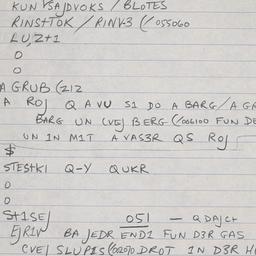 KUN YSAJDVOKS / BLOTES
RINSTTOK / RINV3 (/055060
LU,Z+1
O
O
A GRUB (212
A ROJ Q AVU S1 DO A BARG/A GA
BARG UN CVEJ BERG (/006100 FUN DE
UN IN M1T A VAS3R QS ROJ
$
STESTKI Q-Y QUKR
O
O
St1SEJ 051 — Q DAJCH
EJR1V BA JEDR END1 FUN D3R GAS
CVEJ SLUP1S (/02070 DROT IN D3R H